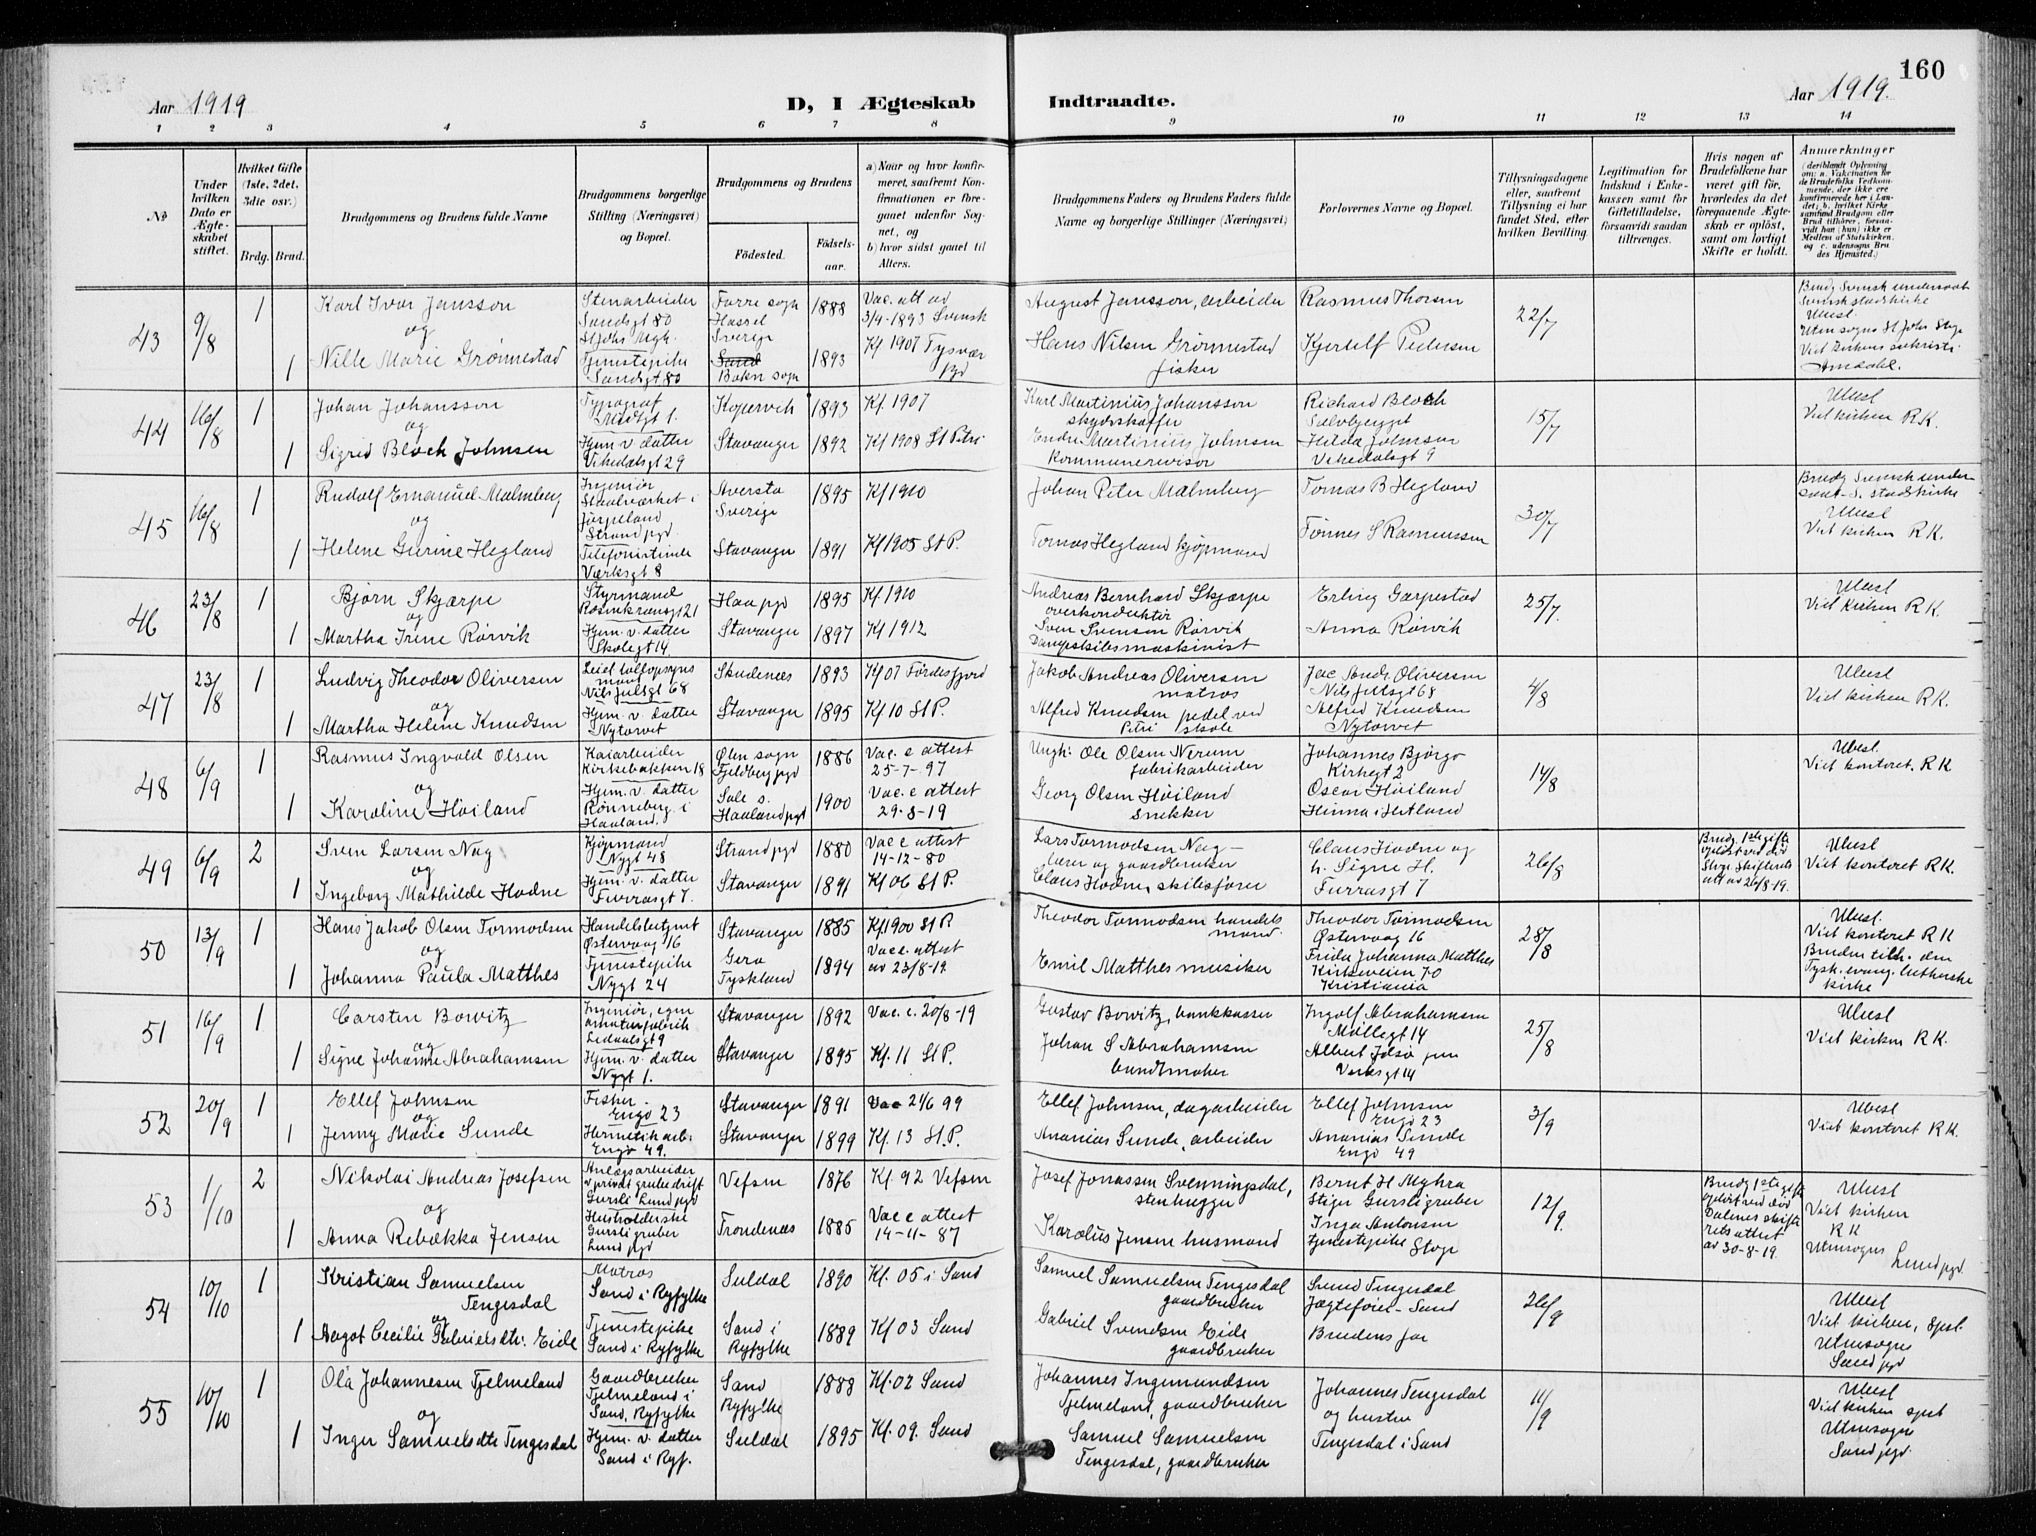 160
Aar 1919
D, I Ægteskab
Indtraadte.
Aar 1919.
1 2 3 4 5 6 7 8 9 10 11 12 13 14
No
Under hvilken Dato er Ægteskabet stiftet.
Hvilket Gifte (1ste, 2det, 3die osv.)
Brdg. Brud.
Brudgommens og Brudens fulde Navne
Brudgommens borgerlige Stilling (Næringsvei) og Bopæl.
Brudgommens og Brudens
Födested.
Födselsaar.
a) Naar og hvor konfirmeret, saafremt Konfirmationen er foregaaet udenfor Sognet, og
b) hvor sidst gaaet til Alters.
Brudgommens Faders og Brudens Faders fulde Navne og borgerlige Stillinger (Næringsvei)
Forlovernes Navne og Bopæl.
Tillysningsdagene eller, saafremt Tillysning ei har fundet Sted, efter hvilken Bevilling.
Legitimation for Indskud i Enkekassen samt for Giftetilladelse, forsaavidt saadan tiltrænges.
Hvis nogen af Brudefolkene har været gift för, hvorledes da det foregaaende Ægteskab er oplöst, samt om lovligt Skifte er holdt.
Anmærkninger
(deriblandt Oplysning om: a. Vaksination for de Brudefolks Vedkommende, der ikke ere konfirmerede her i Landet; b. hvilket Kirkesamfund Brudgom eller Brud tilhörer, forsaavidt han (hun) ikke er Medlem af Statskirken, og c. udensogns Brudes Hjemsted.)
43 9/8 1 Karl Ivar Jansson Stenarbeider Sandsgt 80 St Johs Mgh. Torre sogn Hassel Sverige 1888 Vac. att av 3/4-1893 Svensk August Jansson, arbeider Rasmus Thorsen 22/7 Brudg Svensk undersaat Svensk stadskirke Ubesl.
og
1 Nille Marie Grønnestad Tjenestepike Sandsgt 80 Bokn sogn 1893 Kf 1907 Tysvær pgd Hans Nilsen Grønnestad fisker Kjertelf Pedersen Utensogns St Johs Stgr Viet kirkens sakristi Amdahl.
44 16/8 1 Johan Johansson Typograf Midtgt 1. Kopervik 1893 Kf. 1907 Karl Martinius Johansson skydsskaffer Richard Bloch Solvberggt 15/7 Ubesl Viet kirken R K.
og
1 Sigrid Bloch Johnsen Hjem. v. datter Vikedalsgt 29 Stavanger 1892 Kf 1908 St Petri Endre Martinius Johnsen kommunerevisor Hilda Johnsen Vikedalsgt 9
45 16/8 1 Rudolf Emanuel Malmberg Ingeniør Staalverket i Jørpeland Strand pgd. Aversta Sverige 1895 Kf 1910 Johan Peter Malmberg Tomas B Hegland 30/7 Brudg Svensk undersaat - S. stadskirke Ubesl Viet kirken R K.
og
1 Helene Gurine Hegland Telefonistinde Verksgt 8 Stavanger 1891 Kf 1905 St P. Tomas Hegland kjøpmand Tønnes S Rasmussen
46 23/8 1 Bjørn Skjærpe Styrmand Rosenkransgt 21 Haa pgd 1895 Kf 1910 Andreas Bernhard Skjærpe overkonduktør Erling Garpestad 25/7. Ubesl. Viet kirken R K.
og
1 Martha Irene Rørvik Hjem. v. datter Skolegt 14. Stavanger 1897 Kf 1912 Sven Svensen Rørvik Dampskibsmaskinist Anna Rørvik
47 23/8 1 Ludvig Theodor Oliversen Leiel tolopsynsmand Nils Julsgt 68 Skudenes 1893 Kf 07 Fördesfjord Jakob Andreas Oliversen matros Jac Andr. Oliversen Nils Julsgt 68 4/8 Ubesl Viet kirken R K.
og
1 Martha Helene Knudsen Hjem. v. datter Nytorvet Stavanger 1895 Kf 10 St P. Alfred Knudsen pedel ved Petri skole Alfred Knudsen Nytorvet
48 6/9 1 Rasmus Ingvald Olsen Kaiarbeider Kirkebakken 18 Ølen sogn Fjeldberg pgd 1886 Vac. e attest 25-7-97 Ungk: Ole Olsen Nerum fabrikarbeider Johannes Bjørgo Kirkegt 2 14/8 Ubesl. Viet kontoret. R K
og
1 Karoline Høiland Hjem. v. datter Rønneberg. i Haaland. Sole s. Haaland pgd 1900 Vac. e attest 29-8-19 Georg Olsen Høiland snekker Oscar Høiland Hinna i Hetland
49 6/9 2 Sven Larsen Nag Kjøpmand Nygt 48 Strand pgd 1880 Vac e attest 14-12-80 Lars Tormodsen Nag - lærer og gaardbruker Claus Hodne og h. Signe H. 26/8 Brudg. 1ste gifte opløst ved død Stgr. Skifterets att av 26/8-19. Ubesl Viet kontoret R K.
og
1 Ingeborg Mathilde Hodne Hjem. v. datter Furrasgt 7. Stavanger 1891 Kf 06 St P. Claus Hodne, skibsfører Furrasgt 7
50 13/9 1 Hans Jakob Olsen Tormodsen Handelsbetjent Østervaag 16 Stavanger 1885 Kf 1900 St P Theodor Tormodsen handelsmand. Theodor Tormodsen Østervaag 16 28/8 Ubesl. Viet kontoret R K
og
1 Johanna Paula Matthes Tjenestepike Nygt 24 Gera Tyskland 1894 Vac. attest av 23/8-19 Emil Matthes musiker Frida Johanna Matthes Kirkeveien 70 Kristiania Bruden tilh. den Tysk. evang. lutherske kirke
51 16/9 1 Carsten Bowitz Ingeniør, egen amaturfabrik Lødalsgt 9 Stavanger 1892 Vac. e. 20/8-19 Gustav Bowitz, bankkasser Ingolf Abrahamsen Møllegt 14 25/8 Ubesl Viet kirken R K.
og
1 Signe Johanne Abrahamsen Hjem. v. datter Nygt 1. Stavanger 1895 Kf. 11 St P. Johan S Abrahamsen bundtmaker Albert Idsø jun Verksgt 14
52 20/9 1 Ellef Johnsen Fisker. Engø 23 Stavanger 1891 Vac 21/6 99 Ellef Johnsen, dagarbeider Ellef Johnsen Engø 23 3/9 Ubesl Viet kontoret R K.
og
1 Jenny Marie Sunde Hermetikarb. Engø 49. Stavanger 1899 Kf. 13 St. P. Ananias Sunde, arbeider Ananias Sunde Engø 49
53 1/10 2 Nikolai Andreas Josefsen Anlægsarbeider v privat grubedrift Gursli Lund pgd Vefsen 1876 Kf. 92 Vefsen Josef Jonassen Svenningsdal, stenhugger Bernt H Myhra Stiger Gursligruber 12/9. Brudg 1ste gifte opløst ved død Dalenes skifterets attest av 30-8-19. Ubesl Viet kirken R K
og
1 Anna Rebækka Jensen Husholderske Gursli gruber Lund pgd Trondenes 1885 Vac e attest 14-11-87 Karolius Jensen husmand Inga Antonsen tjenestepike Stgr Utensogns Lund pgd.
54 10/10 1 Kristian Samuelsen Tengesdal Matros Sand i Ryfylke Suldal 1890 Kf. 05 i Sand Samuel Samuelsen Tengesdal gaardbruker Svend Tengesdal Jægtefører - Sand 26/9 Ubesl Viet kirken, Spst.
og
1 Aagot Cecilie Gabrielsdtr. Eide Tjenestepike Sand i Ryfylke Sand i Ryfylke 1889 Kf 03 Sand Gabriel Svendsen Eide gaardbruker Brudens far Utensogns Sand pgd
55 10/10 1 Ola Johannesen Tjelmeland Gaardbruker Tjelmeland i Sand, Ryfylke Sand Ryfylke 1888 Kf. 02 Sand Johannes Ingemundsen Tjelmeland, gaardbruker Johannes Tengesdal og hustru 11/9 Ubesl Viet kirken spst
og
1 Inger Samuelsdtr Tengesdal Hjem. v. datter Sand i Ryf. Suldal 1895 Kf. 09. Sand Samuel Samuelsen Tengesdal, gaardbruker Tengesdal i Sand Utensogns Sand pgd.